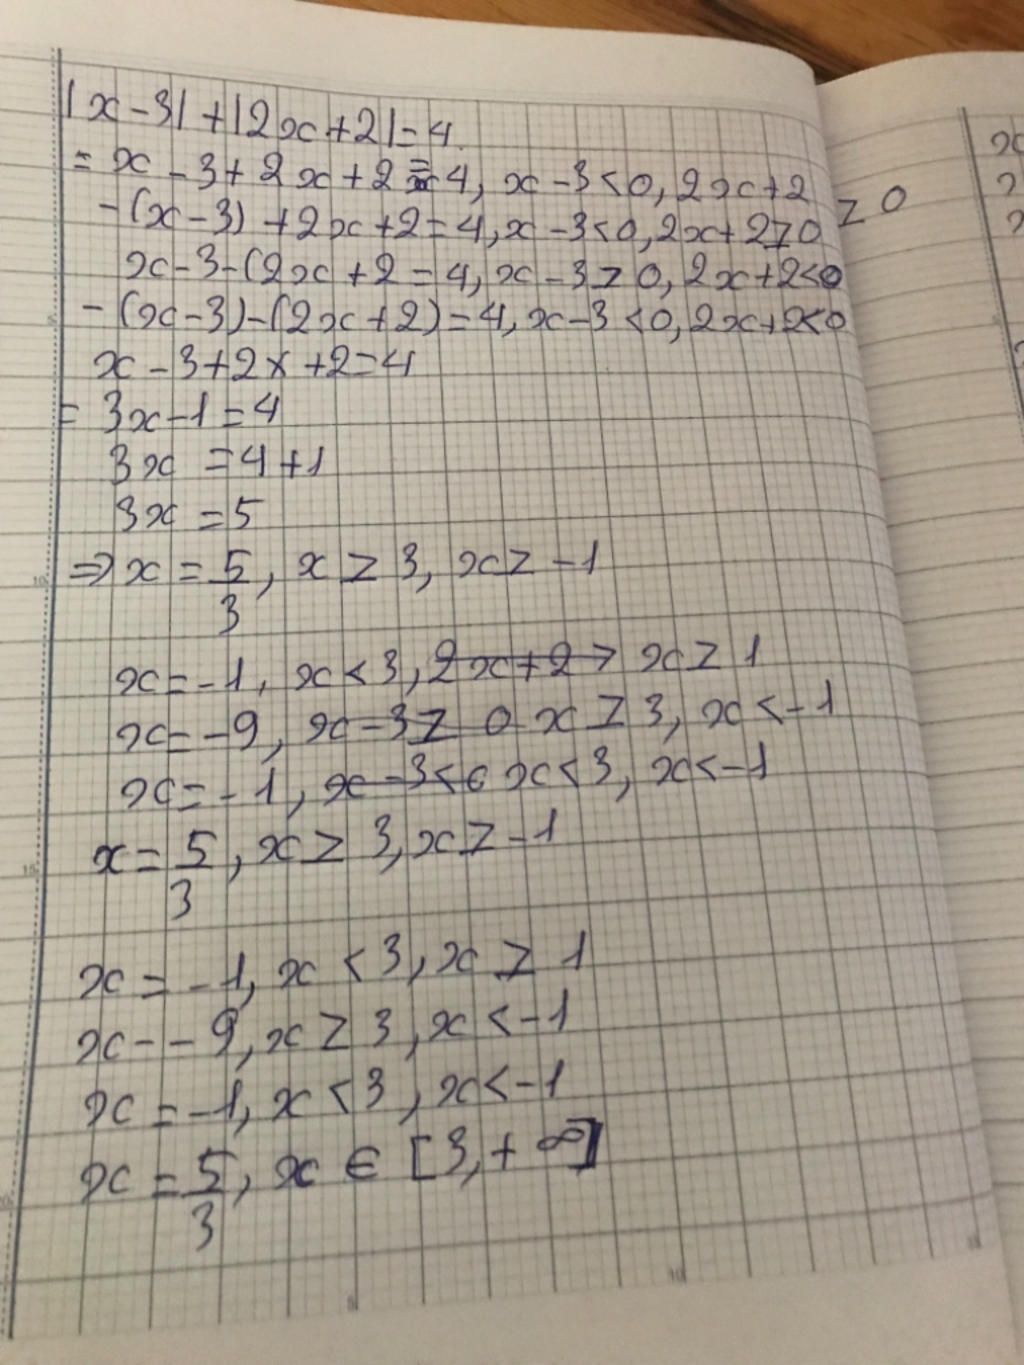 |x-3|+|2x+2|=4.
= x-3+2x+2=4, x-3<0, 2x+2 ≥ 0
-(x-3)+2x+2=4, x-3<0, 2x+2≥0
x-3-(2x+2=4, x-3≥0, 2x+2<0
-(x-3)-(2x+2)=4, x-3<0, 2x+2<0
x-3+2x+2=4
= 3x-1=4
3x=4+1
3x=5
⇒ x=5/3, x≥3, x≥-1
x=-1, x<3, 2x+2> x≥1
x=-9, x-3≥0 x≥3, x<-1
x=-1, x-3<0 x<3, x<-1
x=5/3, x≥3, x≥-1
x=-1, x<3, x≥1
x--9, x≥3, x<-1
x=-1, x<3, x<-1
x=5/3, x∈[3,+∞]